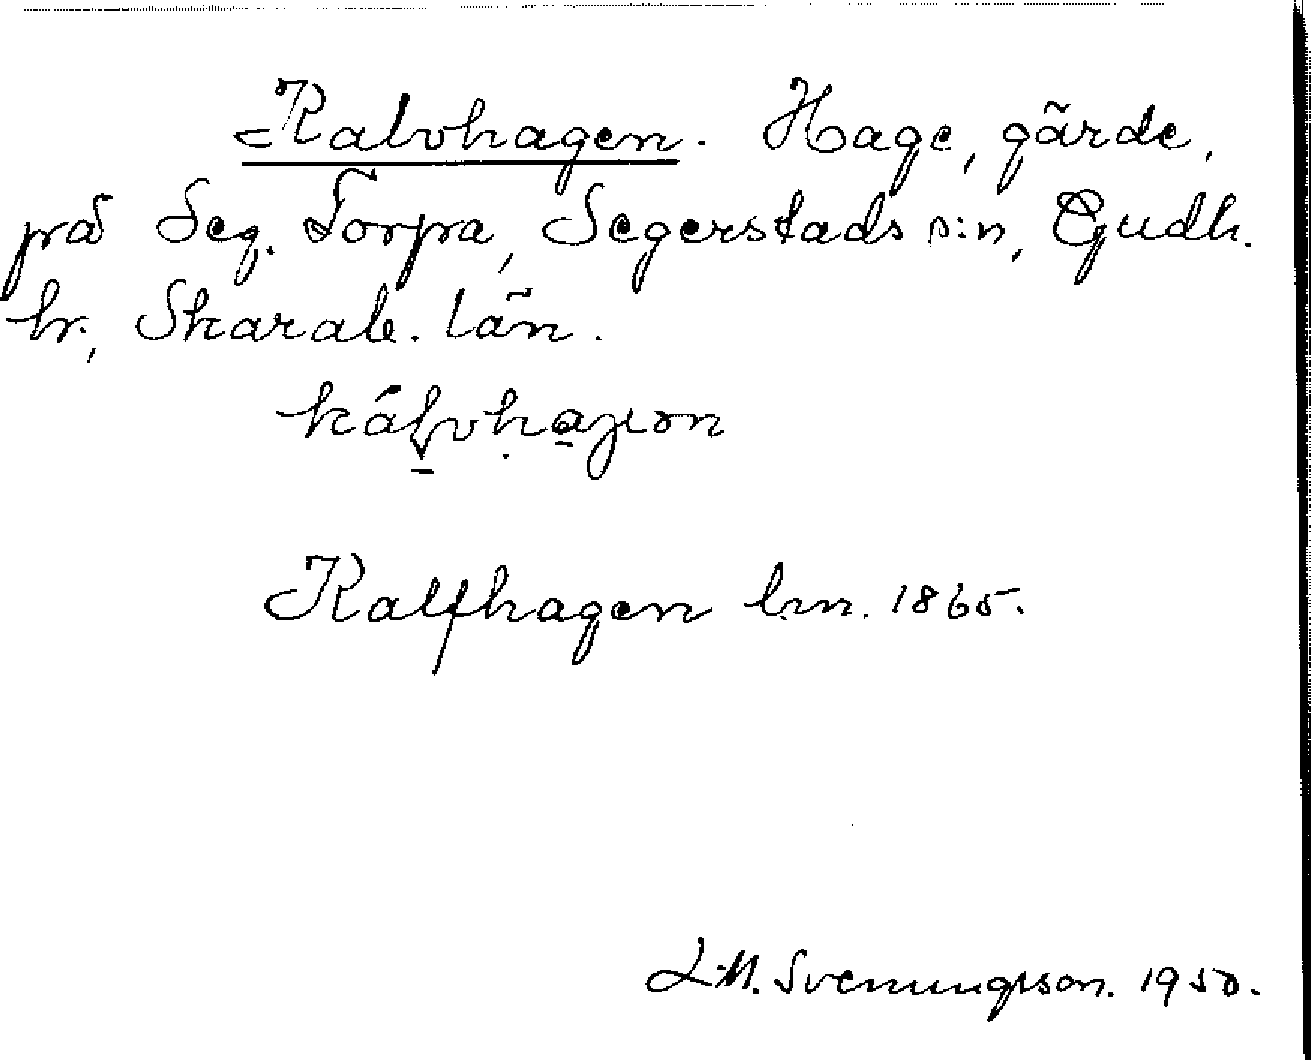 Kalvhagen. Hage, gärde,
på Seg. Torpa, Segerstads s:n, Gudh.
hr., Skarab. län.
Kalfhagen lm. 1865.
L.M. Svenungsson. 1950.